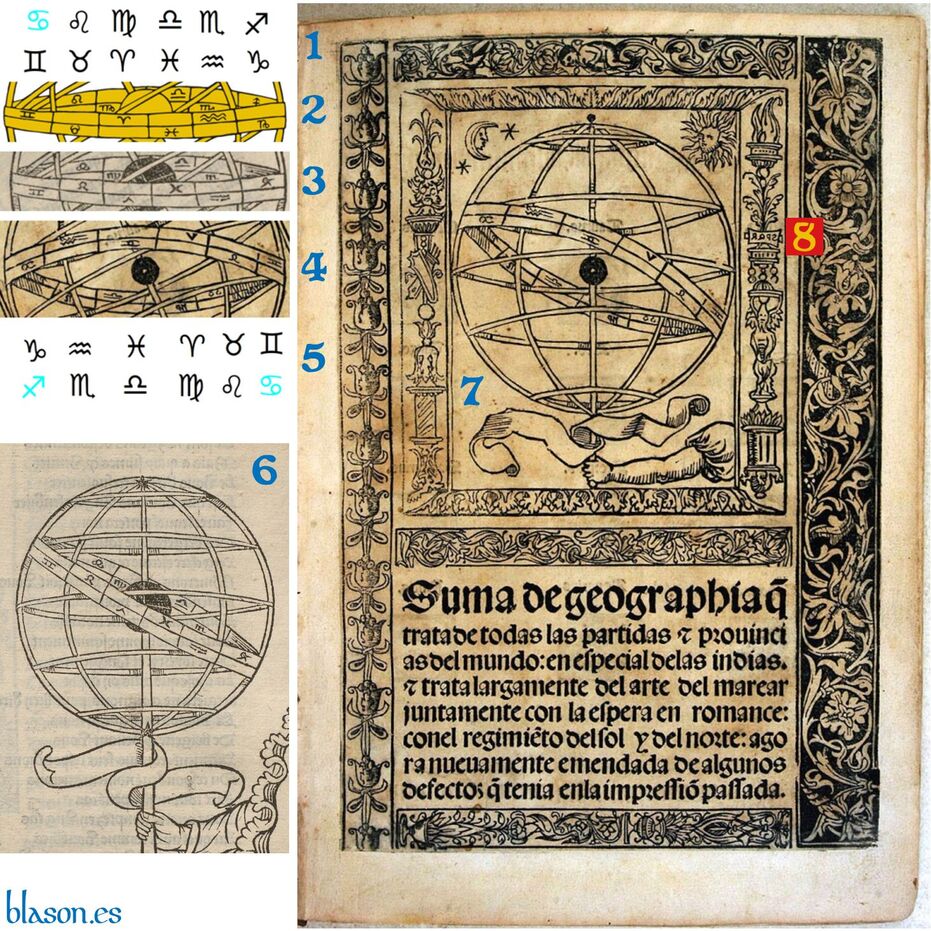 ♋ ♌ ♍ ♎ ♏ ♐
♊ ♉ ♈ ♓ ♒ ♑
♑ ♒ ♓ ♈ ♉ ♊
♐ ♏ ♎ ♍ ♌ ♋
6
blason.es
1
2
3
4
5
7
8
SPQR
Suma de geographia q̃
trata de todas las partidas ⁊ prouinci
as del mundo: en especial delas indias.
⁊ trata largamente del arte del marear
juntamente con la espera en romance:
conel regimiẽto del sol y del norte: ago
ra nueuamente emendada de algunos
defectos q̃ tenia enla impressiõ passada.